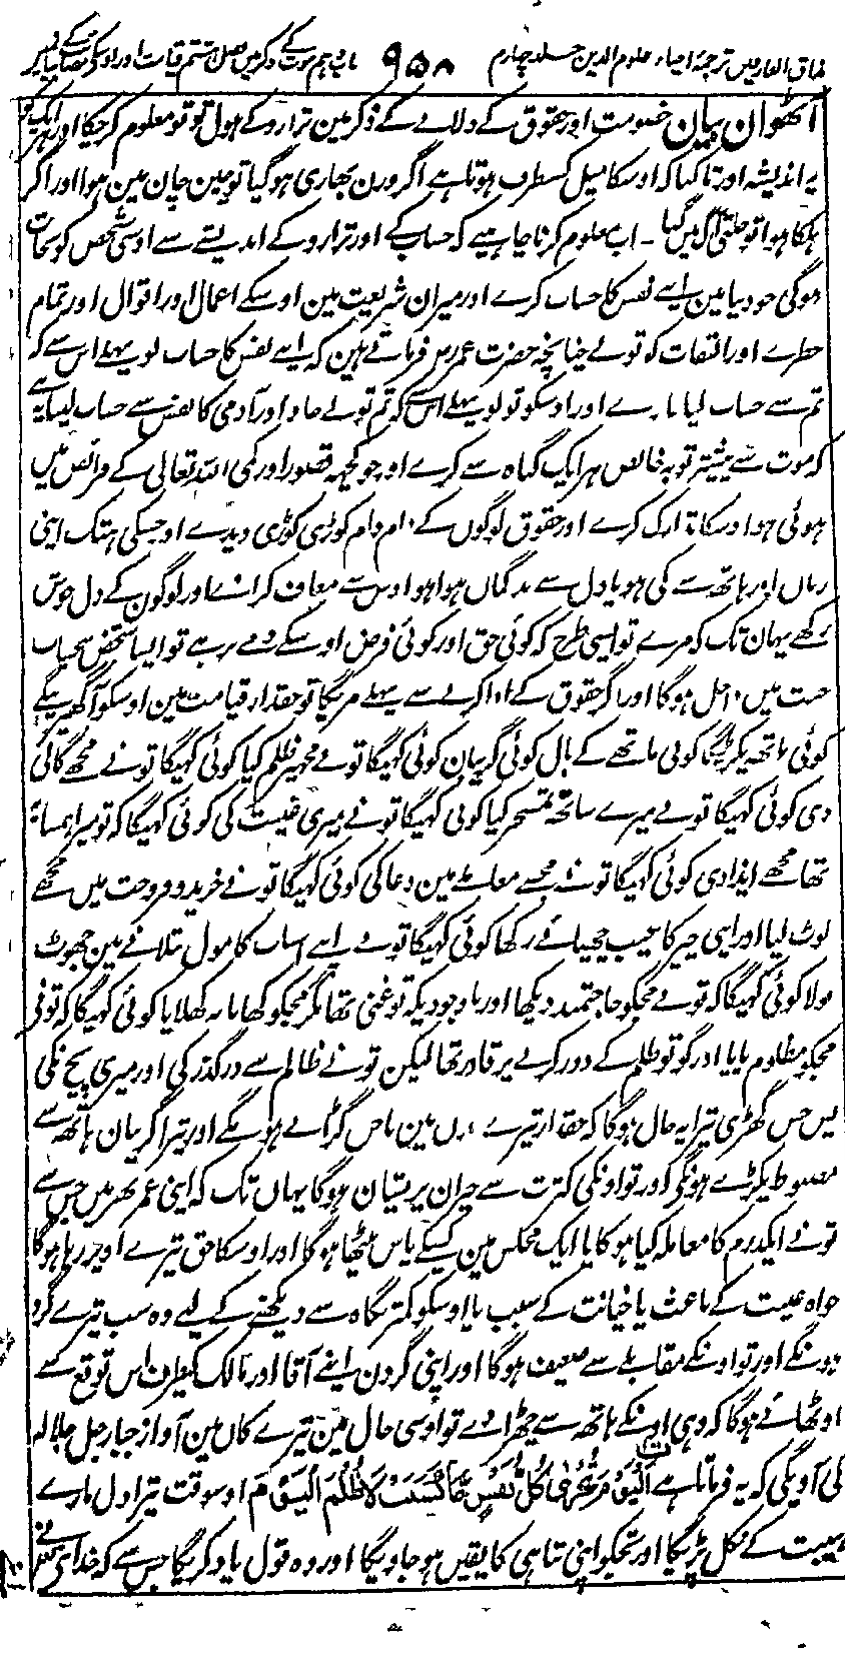 مذاق العارفین ترجمۂ احیاء علوم الدین جلد چہارم ۹۵۸ باب دہم موت کے ذکر میں فصل ہشتم قیامت اور اوسکے مصائب کے ذکر
آٹھوان بیان خصومت اور حقوق کے دلانے کے ذکر مین ترازو کے ہول تو تو معلوم کر چکا اور
یہ اندیشہ اور تاکنا کہ اوسکا میل کسطرف ہوتا ہے اگر وزن بھاری ہوگیا تو مین چان مین ہوا اور اگر
ہلکا ہوا تو جلتی آگ میں گیا ۔ اب معلوم کرنا چاہیے کہ حساب کے اور ترازو کے اندیشے سے اوسی شخص کو نجات
ہوگی جو دنیا مین اپنے نفس کا حساب کرے اور میزان شریعت مین اوسکے اعمال اور اقوال اور تمام
خطرے اور التفات کو تولے چنانچہ حضرت عمر رض فرماتے ہین کہ اپنے نفس کا حساب لو پہلے اس سے کہ
تم سے حساب لیا جاوے اور اوسکو تولو پہلے اس سے کہ تم تولے جاؤ اور آدمی کا نفس سے حساب لینا یہ ہے
کہ موت سے پیشتر توبہ خالص ہر ایک گناہ سے کرے اور جو کچھ قصور اور کمی اللہ تعالی کے فرائض میں
ہوئی ہو اوسکا تدارک کرے اور حقوق لوگوں کے دام دام کوڑی کوڑی دیدے اور جسکی ہتک اپنی
زبان اور ہاتھ سے کی ہو یا دل سے بد گمان ہوا ہو اوس سے معاف کرائے اور لوگون کے دل خوش
رکھے یہان تک کہ مرے تو اسی طرح کہ کوئی حق اور کوئی فرض اوسکے ذمے نرہے تو ایسا شخص بیحساب
جنت میں داخل ہوگا اور اگر حقوق کے ادا کرنے سے پہلے مریگا تو حقدار قیامت مین اوسکو آگھیرینگے
کوئی ہاتھ پکڑیگا کوئی ماتھے کے بال کوئی گریبان کوئی کہیگا تونے مجھپر ظلم کیا کوئی کہیگا تونے مجھے گالی
دی کوئی کہیگا تونے میرے ساتھ تمسخر کیا کوئی کہیگا تونے میری غیبت کی کوئی کہیگا کہ تو میرا ہمسایہ
تھا مجھے ایذا دی کوئی کہیگا تونے مجھسے معاملے مین دغا کی کوئی کہیگا تونے خرید و فروخت میں مجھے
لوٹ لیا اور اپنی چیز کا عیب چھپائے رکھا کوئی کہیگا تونے اپنے اسباب کا مول بتلانے مین جھوٹ
بولا کوئی کہیگا کہ تونے مجکو حاجتمند دیکھا اور باوجودیکہ تو غنی تھا مگر مجکو کھانا نہ کھلایا کوئی کہیگا کہ تونے
مجکو مظلوم پایا اور گو تو ظلم کے دور کرنے پر قادر تھا لیکن تونے ظالم سے درگذر کی اور میری پچ نکی
پس جس گھڑی تیرا یہ حال ہوگا کہ حقدار تیرے بدن مین ناخن گڑائے ہونگے اور تیرا گریبان ہاتھ سے
مضبوط پکڑے ہونگے اور تو اونکی کثرت سے حیران پریشان ہوگا یہاں تک کہ اپنی عمر بھر میں جس سے
تونے ایکدرم کا معاملہ کیا ہوگا یا ایک مجلس مین کسیکے پاس بیٹھا ہوگا اور اوسکا حق تیرے اوپر رہا ہوگا
خواہ غیبت کے باعث یا خیانت کے سبب یا اوسکو کمتر نگاہ سے دیکھنے کے لیے وہ سب تیرے گرد
ہونگے اور تو اونکے مقابلے سے ضعیف ہوگا اور اپنی گردن اپنے آقا اور مالک کیطرف اس توقع سے
اوٹھائے ہوگا کہ وہی اونکے ہاتھ سے چھڑادے تو اوسی حال مین تیرے کان مین آواز جبار جل جلالہ
کی آویگی کہ یہ فرماتا ہے اَلْیَوْمَ تُجْزٰی کُلُّ نَفْسٍ بِمَا کَسَبَتْ لَا ظُلْمَ الْیَوْمَ اوسوقت تیرا دل مارے
ہیبت کے نکل پڑیگا اور تجکو اپنی تباہی کا یقین ہو جاویگا اور وہ قول یاد کریگا جس سے کہ خدا تعالی نے